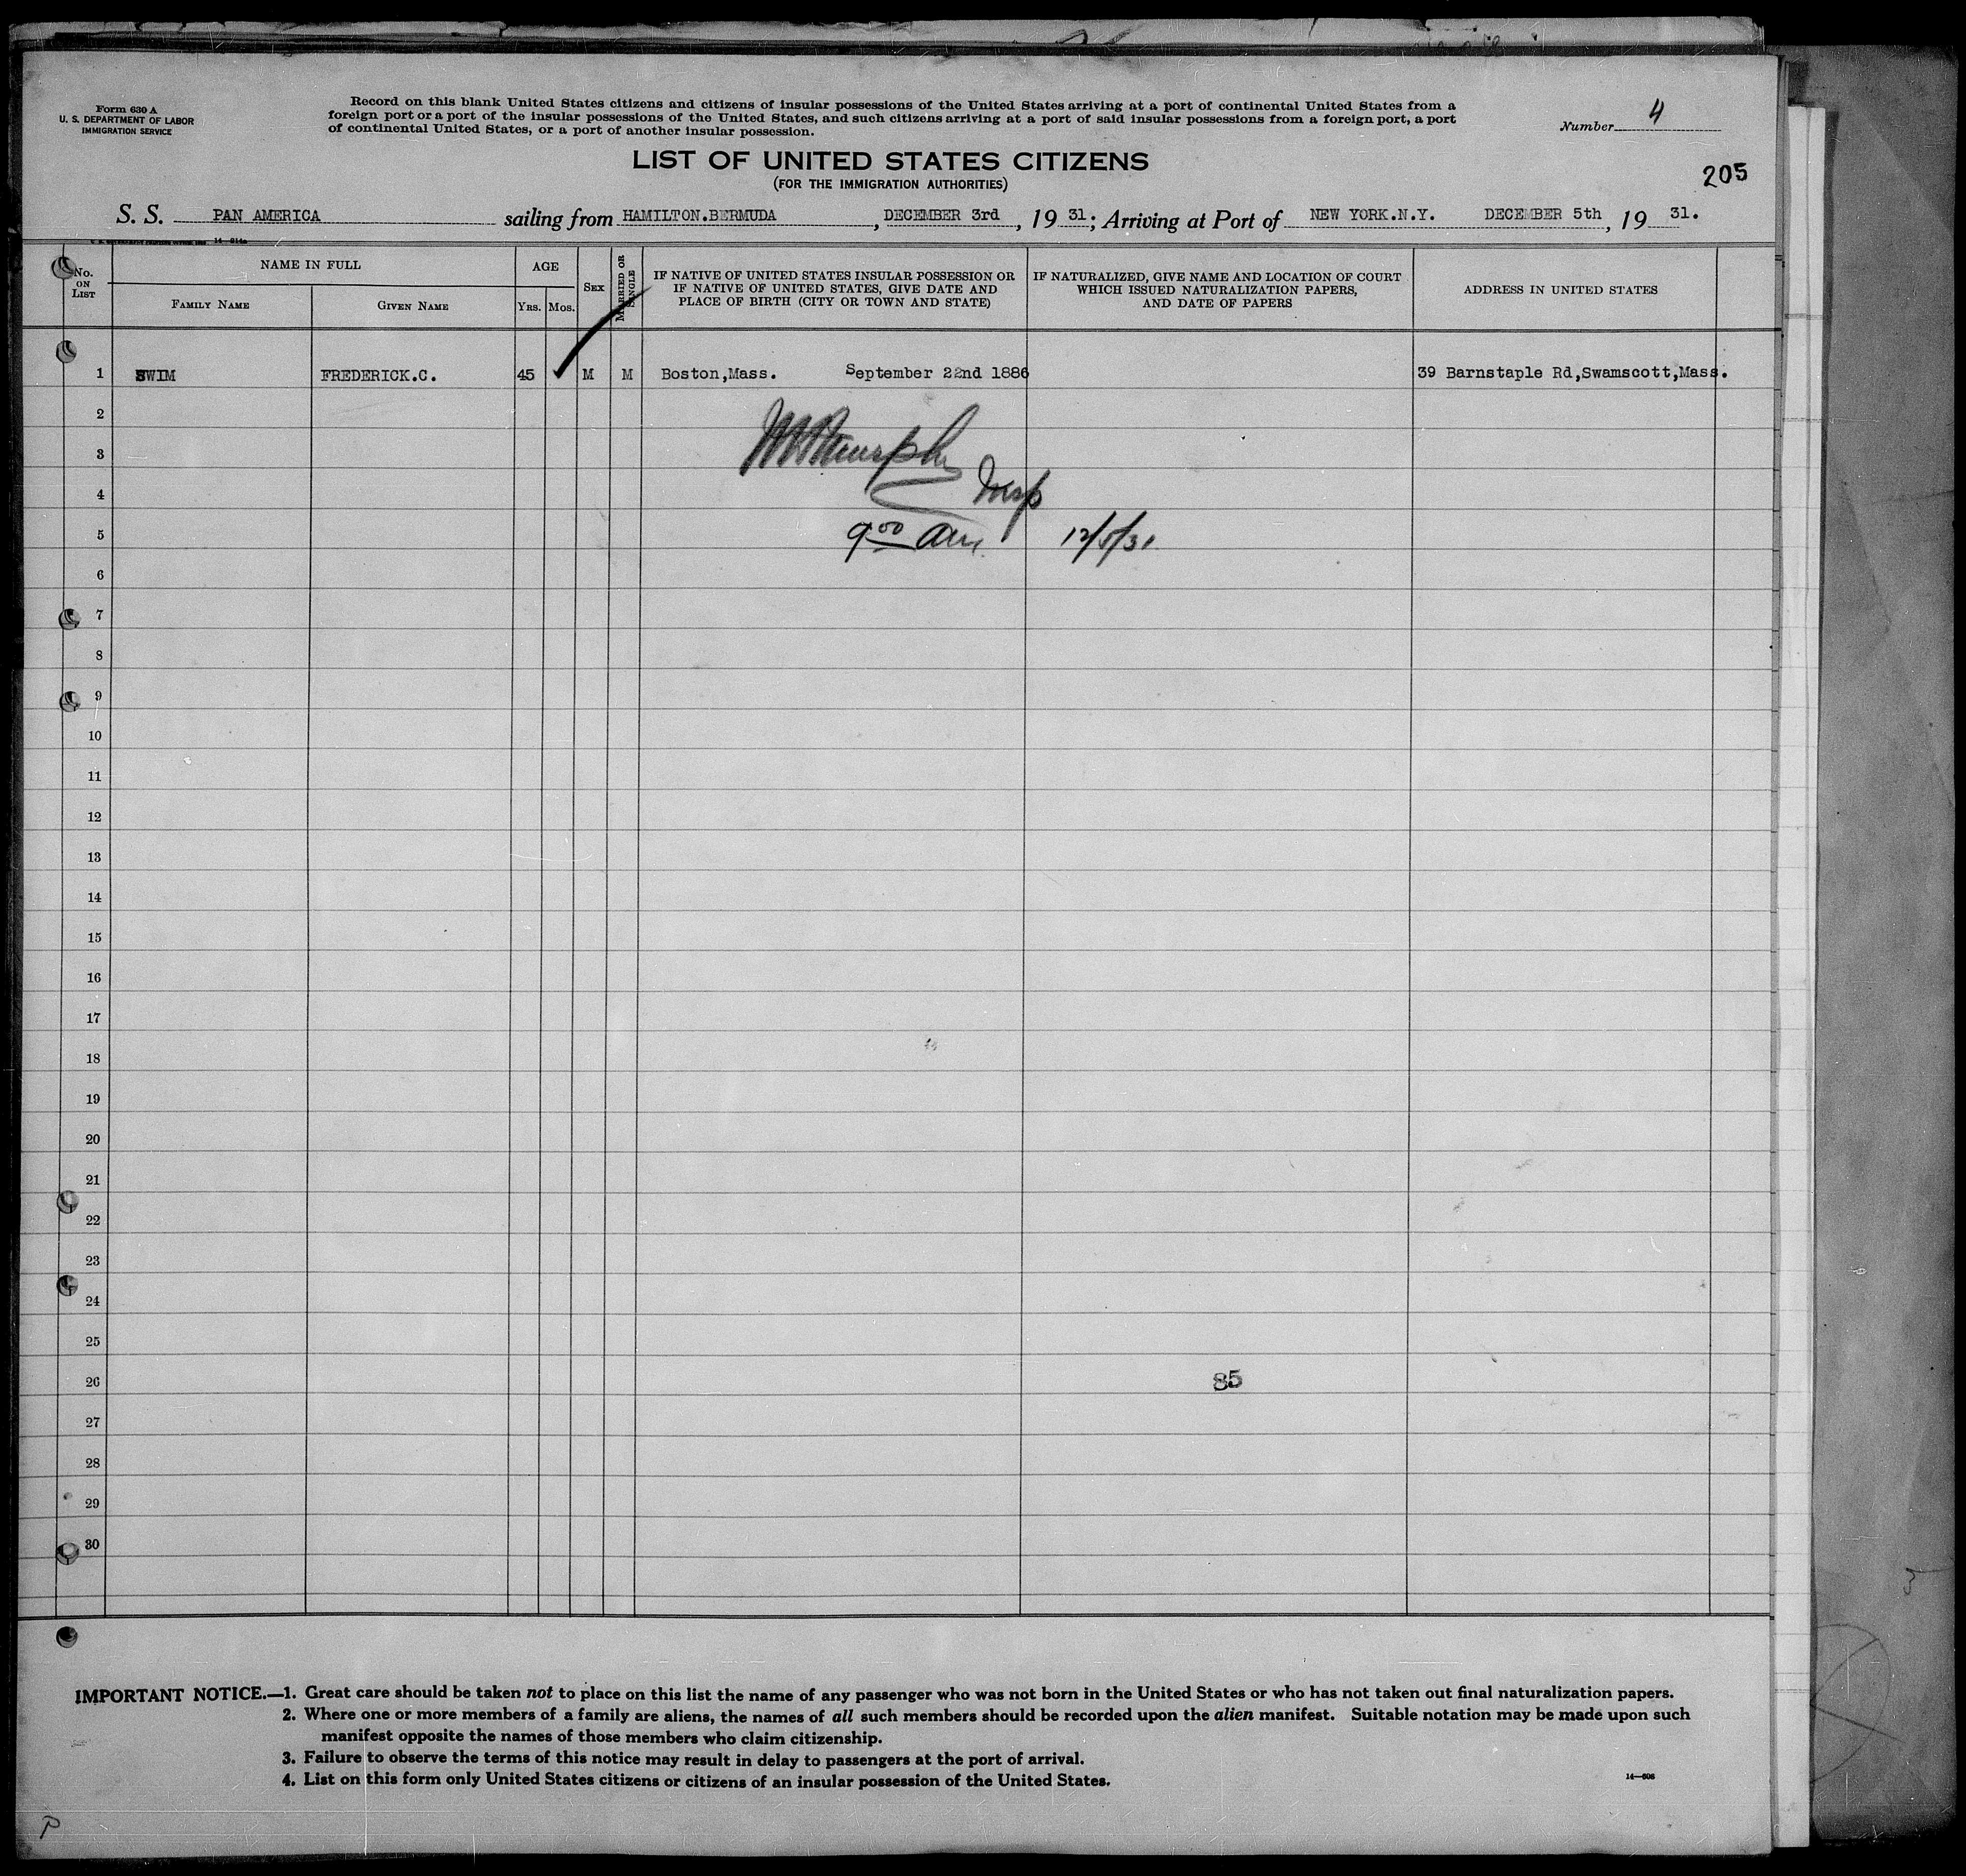 Form 630 A
U. S. DEPARTMENT OF LABOR
IMMIGRATION SERVICE
Record on this blank United States citizens and citizens of insular possessions of the United States arriving at a port of continental United States from a
foreign port or a port of the insular possessions of the United States, and such citizens arriving at a port of said insular possessions from a foreign port, a port
of continental United States, or a port of another insular possession.
Number 4
LIST OF UNITED STATES CITIZENS
(FOR THE IMMIGRATION AUTHORITIES)
205
S. S. PAN AMERICA sailing from HAMILTON.BERMUDA, DECEMBER 3rd, 19 31; Arriving at Port of NEW YORK.N.Y. DECEMBER 5th, 19 31.
No. ON LIST
NAME IN FULL
FAMILY NAME
GIVEN NAME
AGE
Yrs.
Mos.
SEX
MARRIED OR SINGLE
IF NATIVE OF UNITED STATES INSULAR POSSESSION OR
IF NATIVE OF UNITED STATES, GIVE DATE AND
PLACE OF BIRTH (CITY OR TOWN AND STATE)
IF NATURALIZED, GIVE NAME AND LOCATION OF COURT
WHICH ISSUED NATURALIZATION PAPERS,
AND DATE OF PAPERS
ADDRESS IN UNITED STATES
1 SWIM FREDERICK.C. 45 M M Boston,Mass. September 22nd 1886 39 Barnstaple Rd,Swamscott,Mass.
2
3 Murphy
4 Insp
5 9 00 am 12/5/31
6
7
8
9
10
11
12
13
14
15
16
17
18
19
20
21
22
23
24
25
26 85
27
28
29
30
IMPORTANT NOTICE.—1. Great care should be taken not to place on this list the name of any passenger who was not born in the United States or who has not taken out final naturalization papers.
2. Where one or more members of a family are aliens, the names of all such members should be recorded upon the alien manifest. Suitable notation may be made upon such
manifest opposite the names of those members who claim citizenship.
3. Failure to observe the terms of this notice may result in delay to passengers at the port of arrival.
4. List on this form only United States citizens or citizens of an insular possession of the United States.
14—608
P